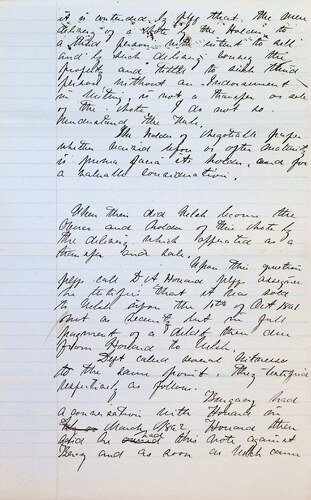 it is contended by plffs that "The mere
delivery of a note by the Holder to
a third person with intent to sell
and by such delivery convey the
property and tittle to such third
person without an Indorsement
in writing is not a transfer or sale
of the note. I do not so
understand the rule.
The Holder of negotiable paper
whether received upon or after maturity
is prima facia its holder, and for
a valuable consideration.
When then did Welch become the
Owner and holder of this note by
the delivery which operated as a
transfer and sale.
Upon this question
plffs call D A Howard plffs assignee
he testifies that it was sold
to Welch upon the 15th of Oct 1881
not as security but in full
payment of a debt then due
from Howard to Welch.
Deft called several witnesses
to the same point. They testified
respectively as follows.
had
a conversation with Howard in
March 1882 Howard then
said he had this note against
Berg and as soon as Welch came